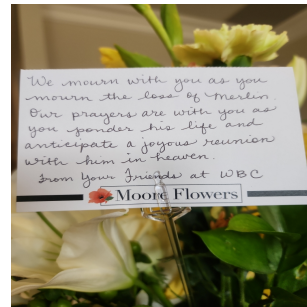 We mourn with you as you
mourn the loss of Merlin.
Our prayers are with you as
you ponder his life and
anticipate a joyous reunion
with him in heaven.
From Your Friends at WBC
Moore Flowers